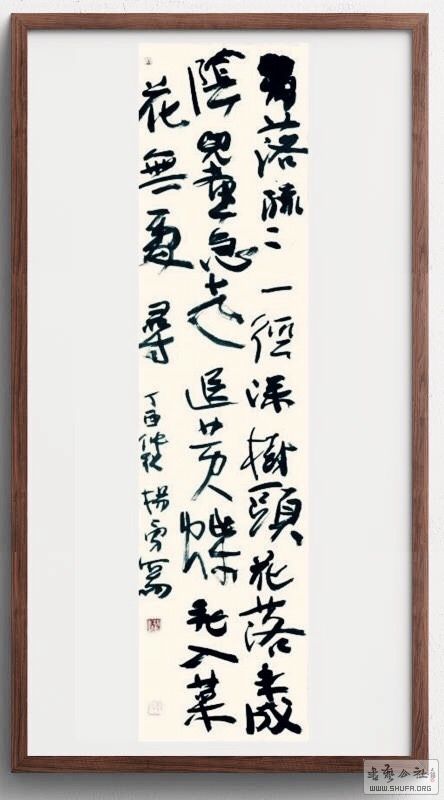 籬落疏〻一徑深樹頭花落未成
陰兒童急走追黄蝶飛入菜
花無處尋 丁酉 秋 楊 寫
書藝公社
WWW.SHUFA.ORG